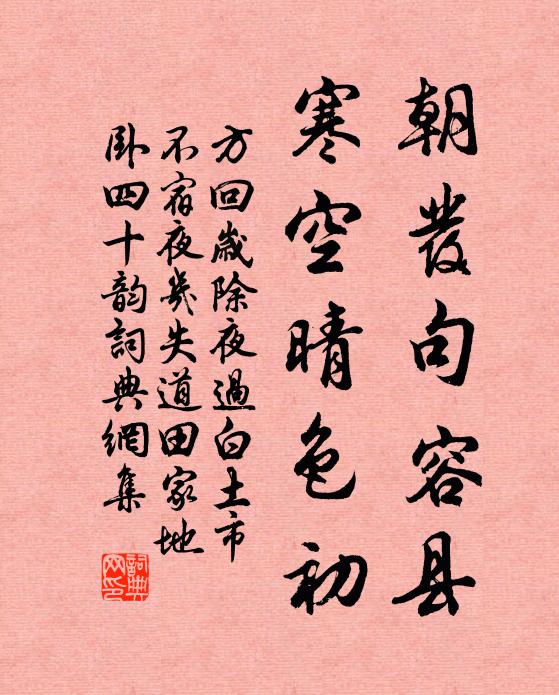 朝發句容县
寒空晴色初
方回歲除夜過白土市
不宿夜幾失道田家地
卧四十韵詞典網集
詞典網印